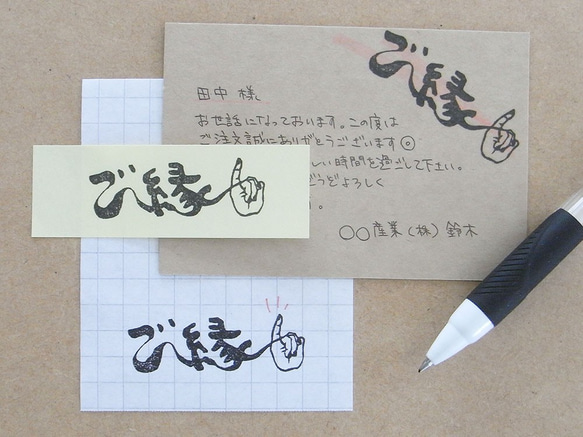 ご縁
田中 様
お世話になっております。この度は
ご注文誠にありがとうございます◎
しい時間を過ごして下さい。
どうぞよろしく
。
〇〇産業(株)鈴木
ご縁
ご縁